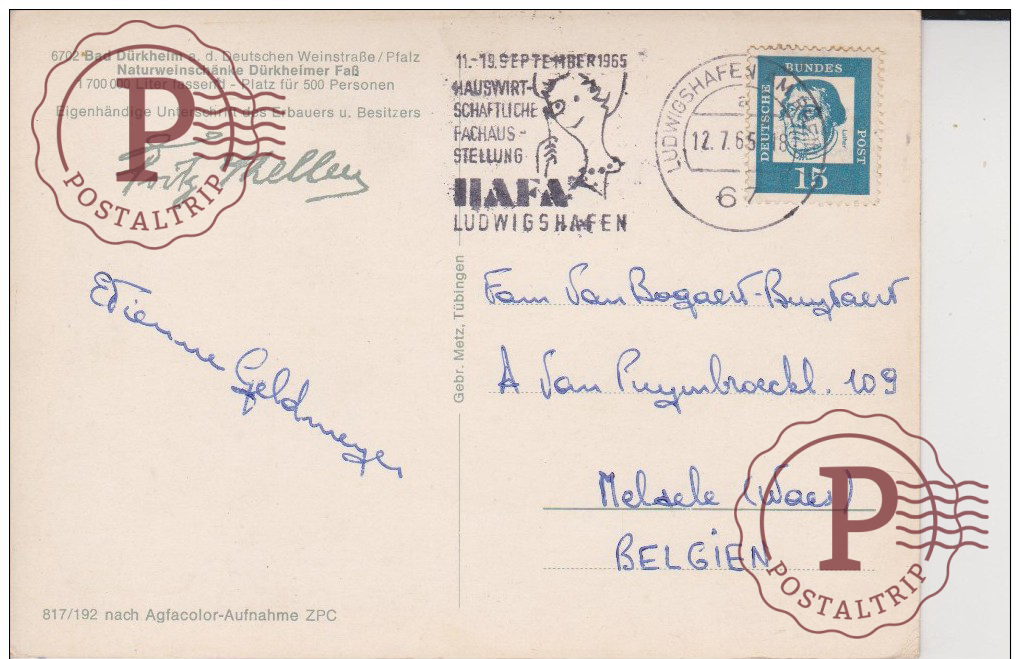 6702 Bad Dürkheim a. d. Deutschen Weinstraße/Pfalz
Naturweinschänke Dürkheimer Faß
1 700 000 Liter fassend - Platz für 500 Personen
Eigenhändige Unterschrift des Erbauers u. Besitzers
Fritz Keller
P
POSTALTRIP
11.-19. SEPTEMBER 1965
HAUSWIRT-
SCHAFTLICHE
FACHAUS-
STELLUNG
HAFA
LUDWIGSHAFEN
LUDWIGSHAFEN AM RHEIN
12.7.65-18
67
DEUTSCHE
BUNDES
POST
Luther
15
Etienne Geldmeyer
Gebr. Metz, Tübingen
Fam Van Bogaert-Buytaert
A Van Puymbroeckl. 109
Melsele (Waes)
BELGIEN
P
POSTALTRIP
817/192 nach Agfacolor-Aufnahme ZPC